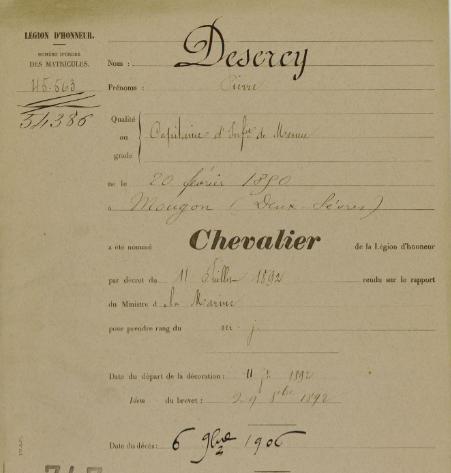 LÉGION D'HONNEUR.
NUMÉRO D'ORDRE
DES MATRICULES.
45.563
34386
Nom : Desercy
Prénoms : Pierre
Qualité
ou
grade
Capitaine d'Infie de Marine
né le 20 février 1850
à Mougon (Deux-Sèvres)
a été nommé Chevalier de la Légion d'honneur
par décret du 11 Juillet 1892 rendu sur le rapport
du Ministre de la Marine
pour prendre rang du
Date du départ de la décoration : 1892
Idem du brevet : 29 1892
Date du décès : 6 9bre 1906